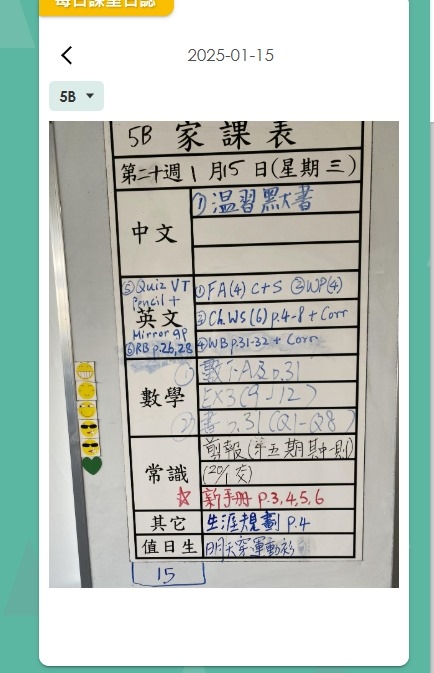 每日課堂日誌
2025-01-15
5B
5B 家課表
第二十週 1月15日(星期三)
中文
①温習默書
英文
①FA(4) C+S ②WP(4)
③Ch.WS(6) p.4-8 + Corr
④WB p.31-32 + Corr
⑤Quiz VT
Pencil +
Mirror gp
⑥RB p.26,28
數學
EX3(9-12)
p.31 (Q1-Q8)
常識
剪報(第五期其中一則)
(20/1交)
☆ 新手冊 P.3,4,5,6
其它
生涯規劃 P.4
值日生
明天穿運動衫
15